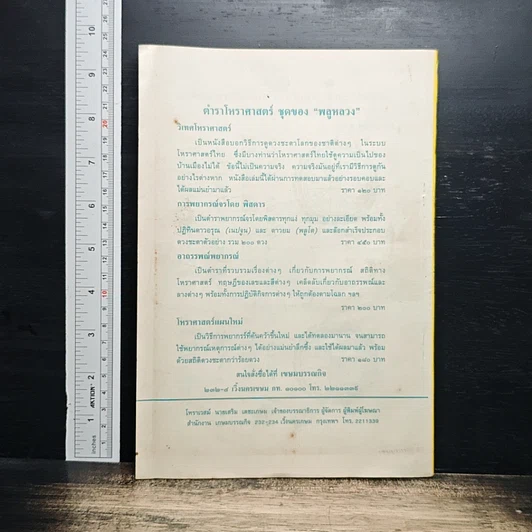 ตำราโหราศาสตร์ ชุดของ "พลูหลวง"
วิเทศโหราศาสตร์
เป็นหนังสือบอกวิธีการดูดวงชะตาโลกของชาติต่างๆ ในระบบ
โหราศาสตร์ไทย ซึ่งมีบางท่านว่าโหราศาสตร์ไทยใช้ดูความเป็นไปของ
บ้านเมืองไม่ได้ ข้อนี้ไม่เป็นความจริง ความจริงมันอยู่ที่เรามีวิธีการดูกัน
อย่างไรต่างหาก หนังสือเล่มนี้ได้ผ่านการทดสอบมาแล้วอย่างรอบคอบและ
ได้ผลแม่นยำมาแล้ว ราคา ๑๒๐ บาท
การพยากรณ์จรโดย พิสดาร
เป็นตำราพยากรณ์จรโดยพิสดารทุกแง่ ทุกมุม อย่างละเอียด พร้อมทั้ง
ปฏิทินดาวอรุณ (เนปจูน) และ ดาวยม (พลูโต) และลัคนาสำเร็จประกอบ
ดวงชะตาตัวอย่าง รวม ๒๐๐ ดวง ราคา ๔๕๐ บาท
อาถรรพณ์พยากรณ์
เป็นตำราที่รวบรวมเรื่องต่างๆ เกี่ยวกับการพยากรณ์ สถิติทาง
โหราศาสตร์ ทฤษฎีของเลขและสีต่างๆ เคล็ดลับเกี่ยวกับอาถรรพณ์และ
ลางต่างๆ พร้อมทั้งการปฏิบัติกิจการต่างๆ ให้ถูกต้องตามโฉลก ฯลฯ
ราคา ๒๐๐ บาท
โหราศาสตร์แผนใหม่
เป็นวิธีการพยากรณ์ที่ค้นคว้าขึ้นใหม่ และได้ทดลองมานาน จนสามารถ
ใช้พยากรณ์เหตุการณ์ต่างๆ ได้อย่างแม่นยำลึกซึ้ง และใช้ได้ผลมาแล้ว พร้อม
ด้วยสถิติดวงชะตากว่าร้อยดวง ราคา ๑๘๐ บาท
สนใจสั่งซื้อได้ที่ เกษมบรรณกิจ
๒๓๒-๔ เวิ้งนครเขษม กท. ๑๐๑๐๐ โทร. ๒๒๑๑๓๓๙
สำนักงาน เกษมบรรณกิจ 232-234 เวิ้งนครเกษม กรุงเทพฯ โทร. 2211339
10
9
8
7
6
5
4
3
2
1
inches